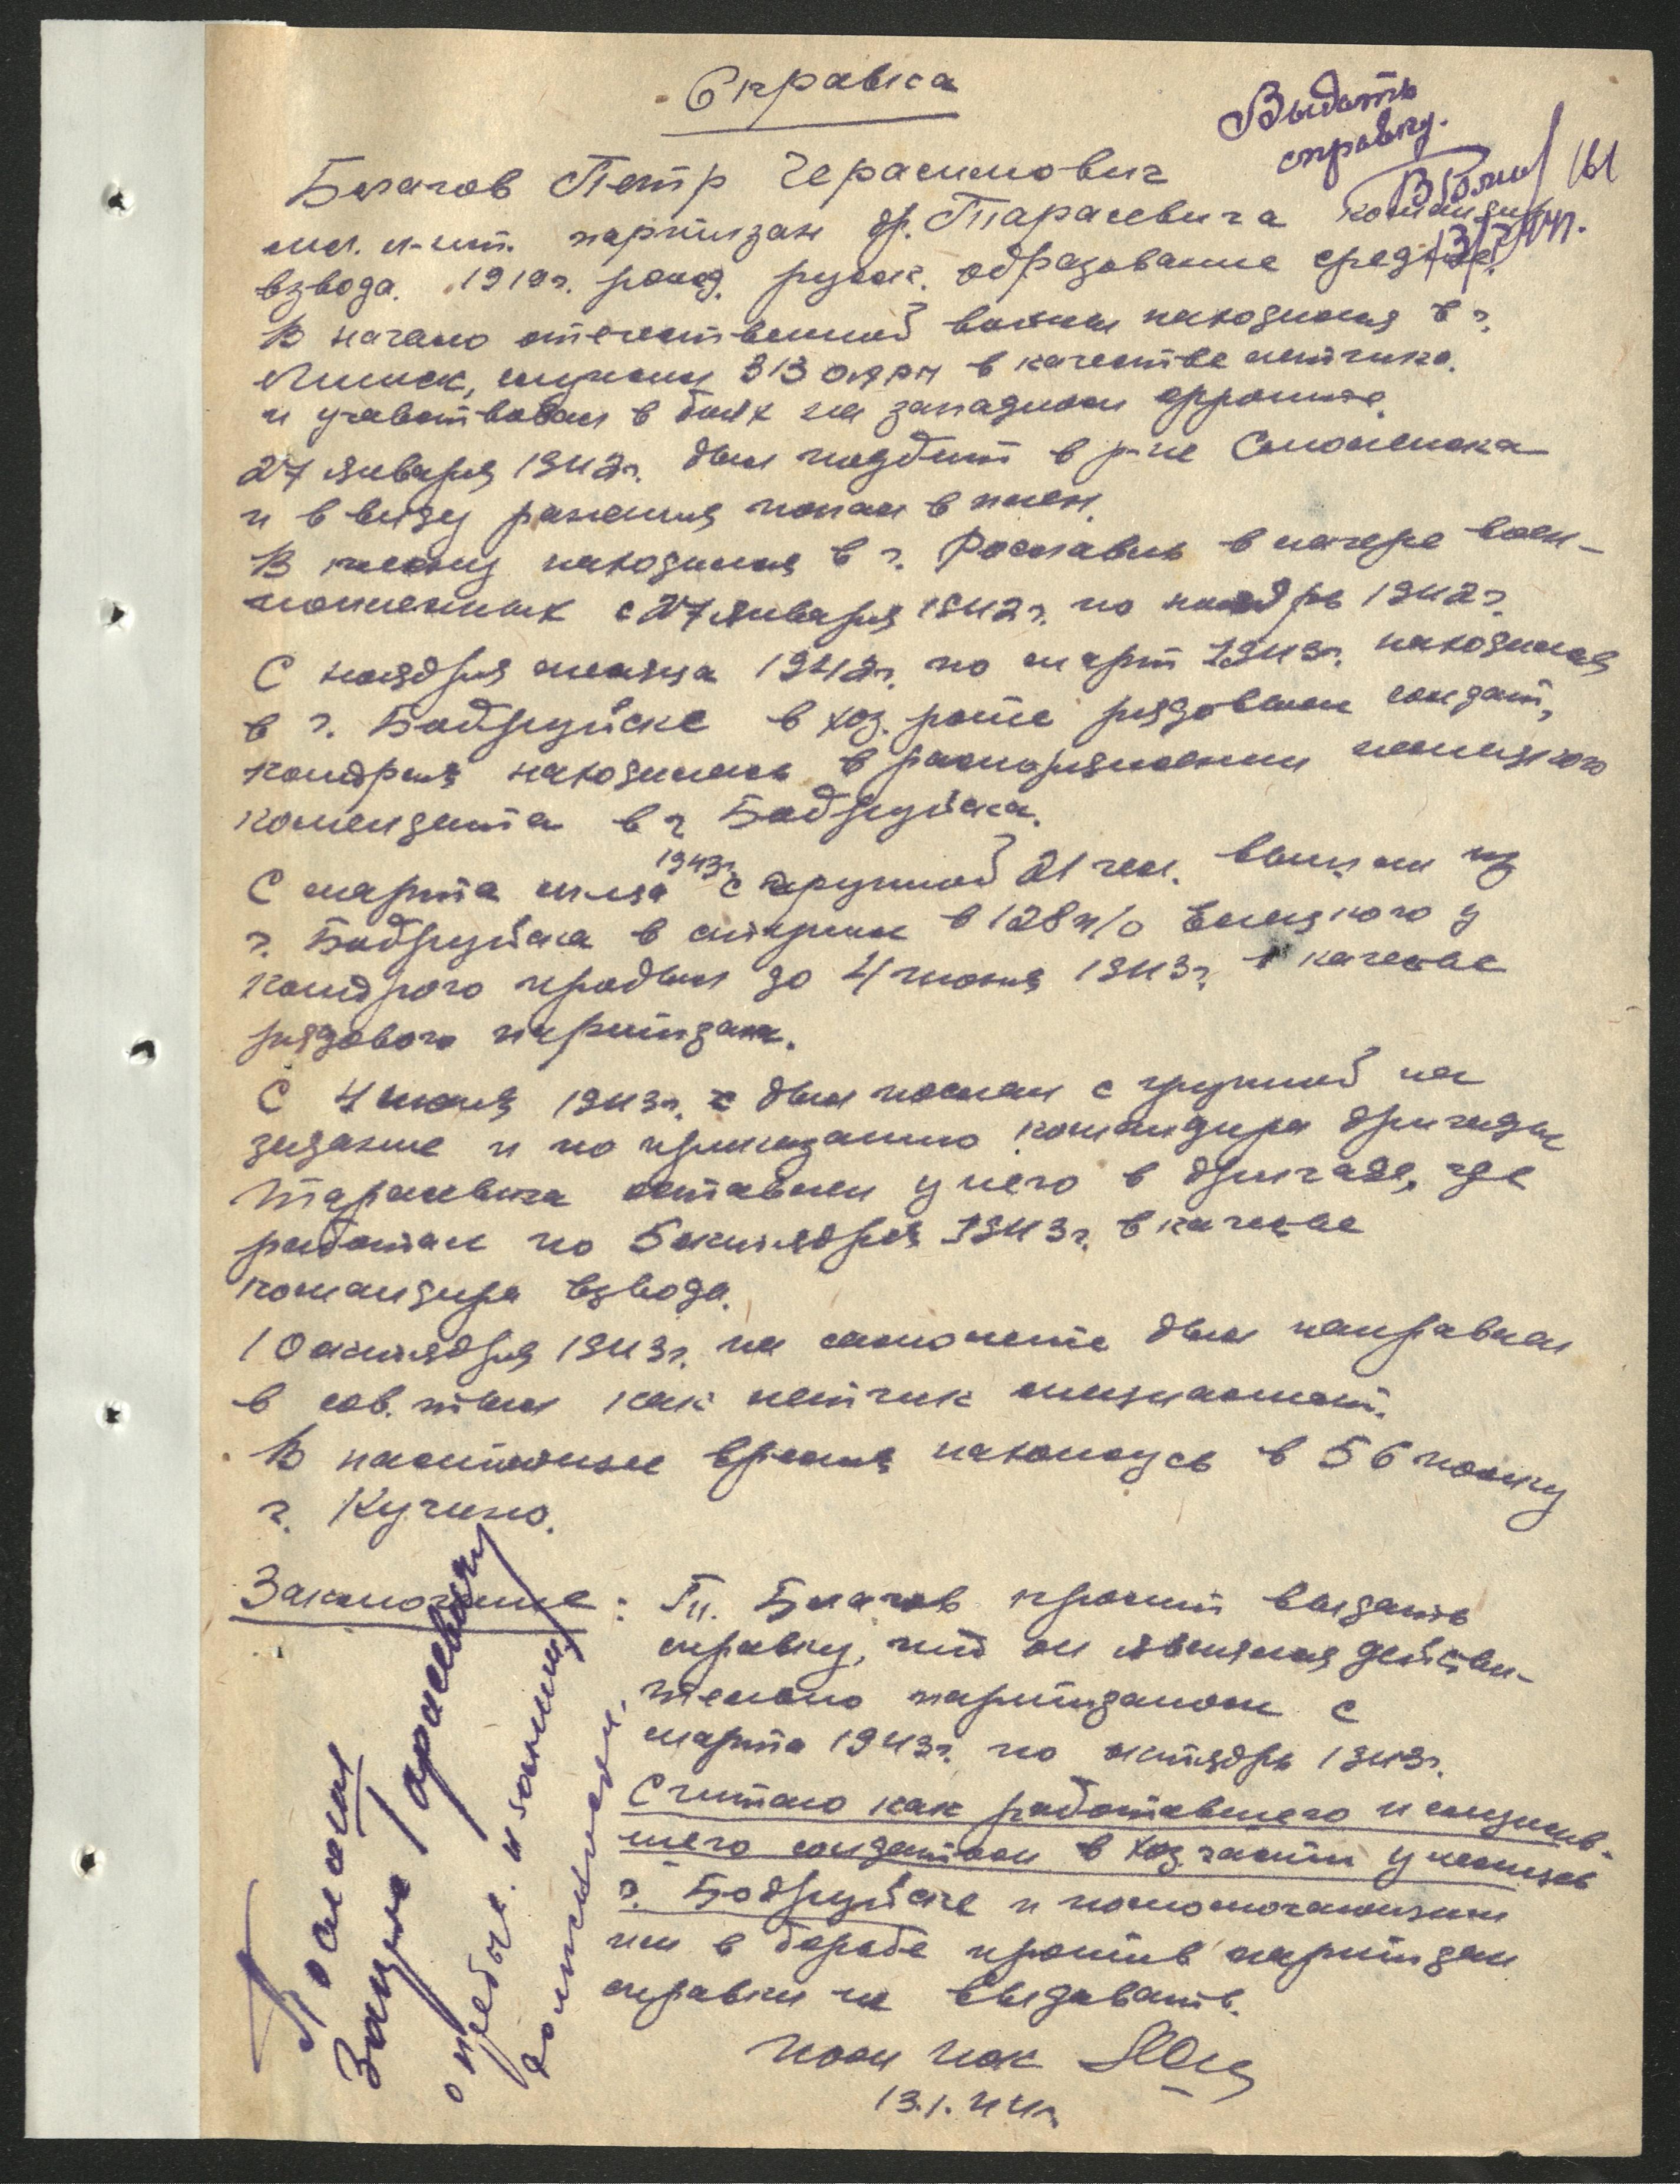 Справка
Выдать
справку.
161
Петр Герасимович
мл. л-нт. партизан бр. Тарасевича командир
взвода. 1919г. рожд. русск. образование среднее.
В начало отечественной войны находился в г.
Минск, служил 313 в качестве летчика.
и участвовал в боях на западном фронте.
27 января 1942г. был подбит в р-не Смоленска
и ввиду ранения попал в плен.
В плену находился в г. Рославль в лагере воен-
нопленных с 27 января 1942г. по ноябрь 1942г.
С ноября месяца 1942г. по март 1943г. находился
в г. Бобруйске в хоз. роте рядовым солдат,
которая находилась в распоряжении немецкого
коменданта в г. Бобруйска.
С марта м-ца 1943г. с группой 21 чел. вышли из
г. Бобруйска в 128 п/о у
которого пробыл до 4 июня 1943г. в качестве
рядового партизан.
С 4 июня 1943г. был послан с группой на
задание и по приказанию командира бригады
Тарасевича оставлен у него в бригаде, где
работал по 5 октября 1943г. в качестве
командира взвода.
10 октября 1943г. на самолете был направлен
в сов. тыл как летчик специалист.
В настоящее время нахожусь в 56 полку
г. Кучино.
Заключение: Тт. просит выдать
справку, что он являлся действи-
тельно партизаном с
марта 1943г. по октябрь 1943г.
Считаю как работавшего и служив-
шего солдатом в хоз. части у немцев
г. Бобруйске и помогающим
им в борьбе против партизан
справки не выдавать.
13.1.44г.
Тарасевичу